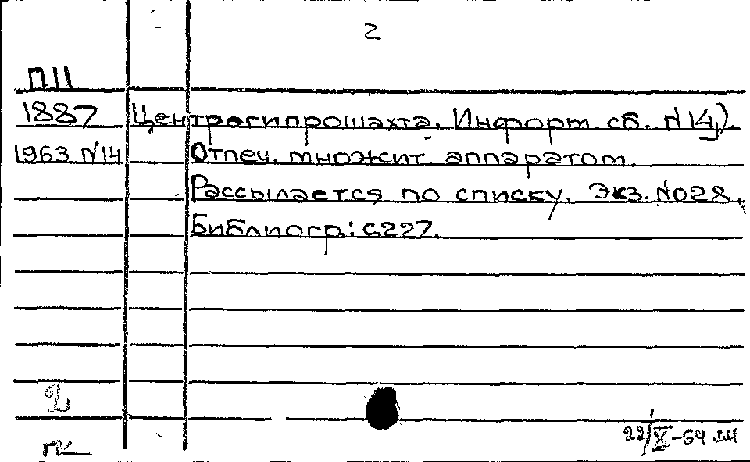 2
П11
1887 Центрогипрошахта. Информ. сб. №14).
1963 №14 Отпеч. множит. аппаратом.
Рассылается по списку. Экз. №028.
Библиогр.: с.227.
22/X-64